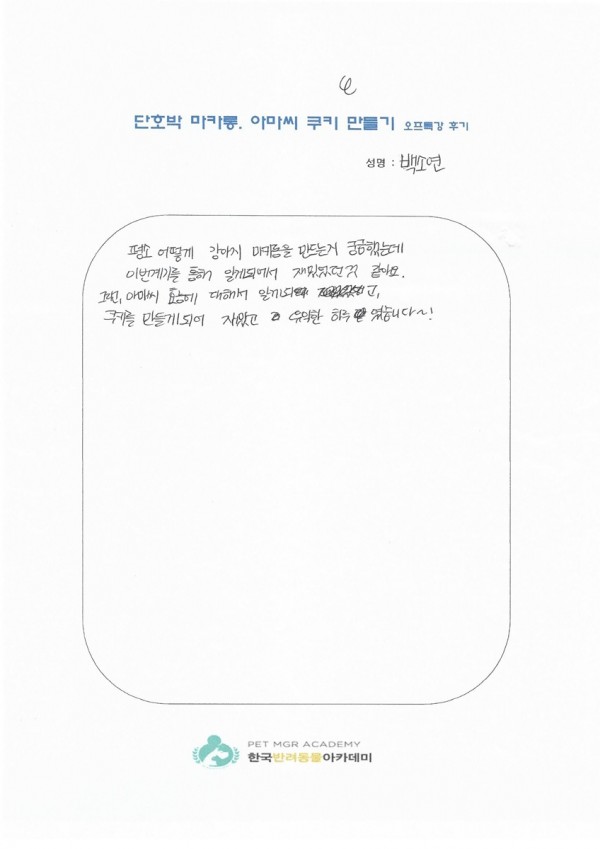 단호박 마카롱. 아마씨 쿠키 만들기 오프특강 후기
성명 : 백소연
평소 어떻게 강아지 마카롱을 만드는지 궁금했는데
이번계기를 통해 알게되어서 재밌었던것 같아요.
그리고, 아마씨 효능에 대해서 알게되고,
쿠키를 만들게되어 재밌었고 유익한 하루였습니다~!
PET MGR ACADEMY
한국반려동물아카데미